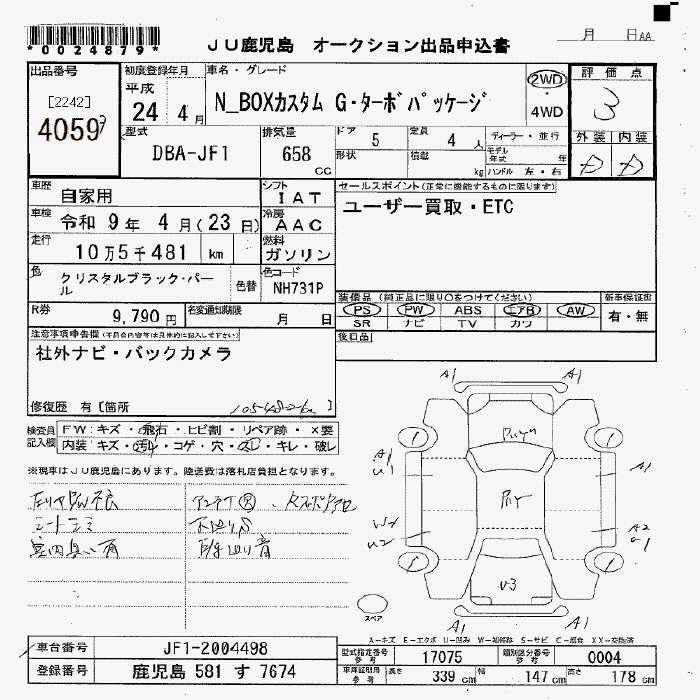 *0024879*
JU鹿児島 オークション出品申込書
月 日AA
出品番号 初度登録年月 車名・グレード
[2242]
4059
平成
24 4月
N_BOXカスタム G・ターボパッケージ
2WD
・
4WD
評価点
3
外装 内装
D D
型式 排気量 ドア 定員 ディーラー・並行
DBA-JF1 658 CC 5 4人
形状 積載 kg
モデル年式 年
ハンドル 左・右
車歴 自家用
シフト IAT
セールスポイント(正常に機能するものに限ります)
ユーザー買取・ETC
車検 令和 9年 4月(23日)
冷房 AAC
走行 10万5千481 km
燃料 ガソリン
色 クリスタルブラック・パール
色替
色コード NH731P
装備品(純正品に限り○をつけてください)
新車保証書
PS PW ABS エアB AW
有・無
SR ナビ TV カワ
R券 9,790円
名変通知期限 月 日
後日品
注意事項申告欄
社外ナビ・バックカメラ
修復歴 有〔箇所 〕
検査員記入欄
FW:キズ・飛石・ヒビ割・リペア跡・X要
内装:キズ・汚れ・コゲ・穴・ネジ・キレ・破レ
※現車はJU鹿児島にあります。陸送費は落札店負担となります。
シートシミ
下廻りS
A1 A1
A1
U1
A1
W2
U2
A2
U3
A1 A1
スペア
A-キズ E-エクボ U-凹み W-補修跡 S-サビ C-腐食 XX-交換済
車台番号 JF1-2004498
登録番号 鹿児島 581 す 7674
型式指定番号 参考 17075
類別区分番号 参考 0004
車庫証明用 参考 長さ 339cm 幅 147cm 高さ 178cm